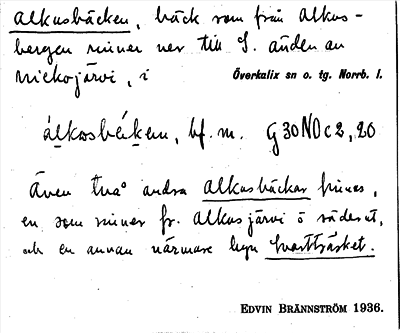 Alkusbäcken, bäck som från Alkus-
bergen rinner ner till S. änden av
Miekojärvi, i Överkalix sn o. tg. Norrb. l.
álkɷsbɛ́ḱen, bf. m. G 30 NO c 2, 20
Även två andra Alkusbäckar finnas,
en som rinner fr. Alkusjärvi ö söderut,
och en annan närmare byn Svartträsket.
EDVIN BRÄNNSTRÖM 1936.